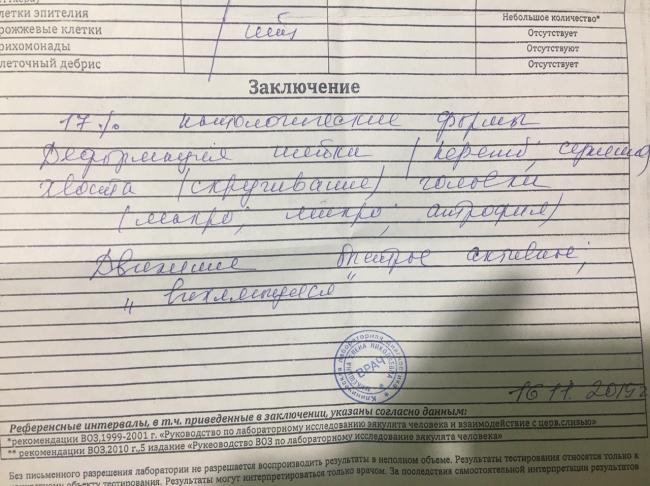 летки эпителия Небольшое количество*
рожжевые клетки Отсутствует
рихомонады Отсутствуют
леточный дебрис Отсутствует
Заключение
17% патологические формы
Деформация шейки (переги
хвоста (скручивание) головки
(макро; микро; антрофия)
Движение быстрое активное;
"виляющиеся"
Клиническая лабораторная диагностика
ЕЛЕНА НИКОЛАЕВНА
ВРАЧ
16 11. 2019г
Референсные интервалы, в т.ч. приведенные в заключении, указаны согласно данным:
*рекомендации ВОЗ,1999-2001 г. «Руководство по лабораторному исследованию эякулята человека и взаимодействие с церв.слизью»
** рекомендации ВОЗ,2010 г.,5 издание «Рукеоводство ВОЗ по лабораторному исследование эякулята человека»
Без письменного разрешения лаборатории не разрешается воспроизводить результаты в неполном объеме. Результаты тестирования относятся только к
объекту тестирования. Результаты могут интерпретироваться только врачом. За последствия самостоятельной интерпретации результатов